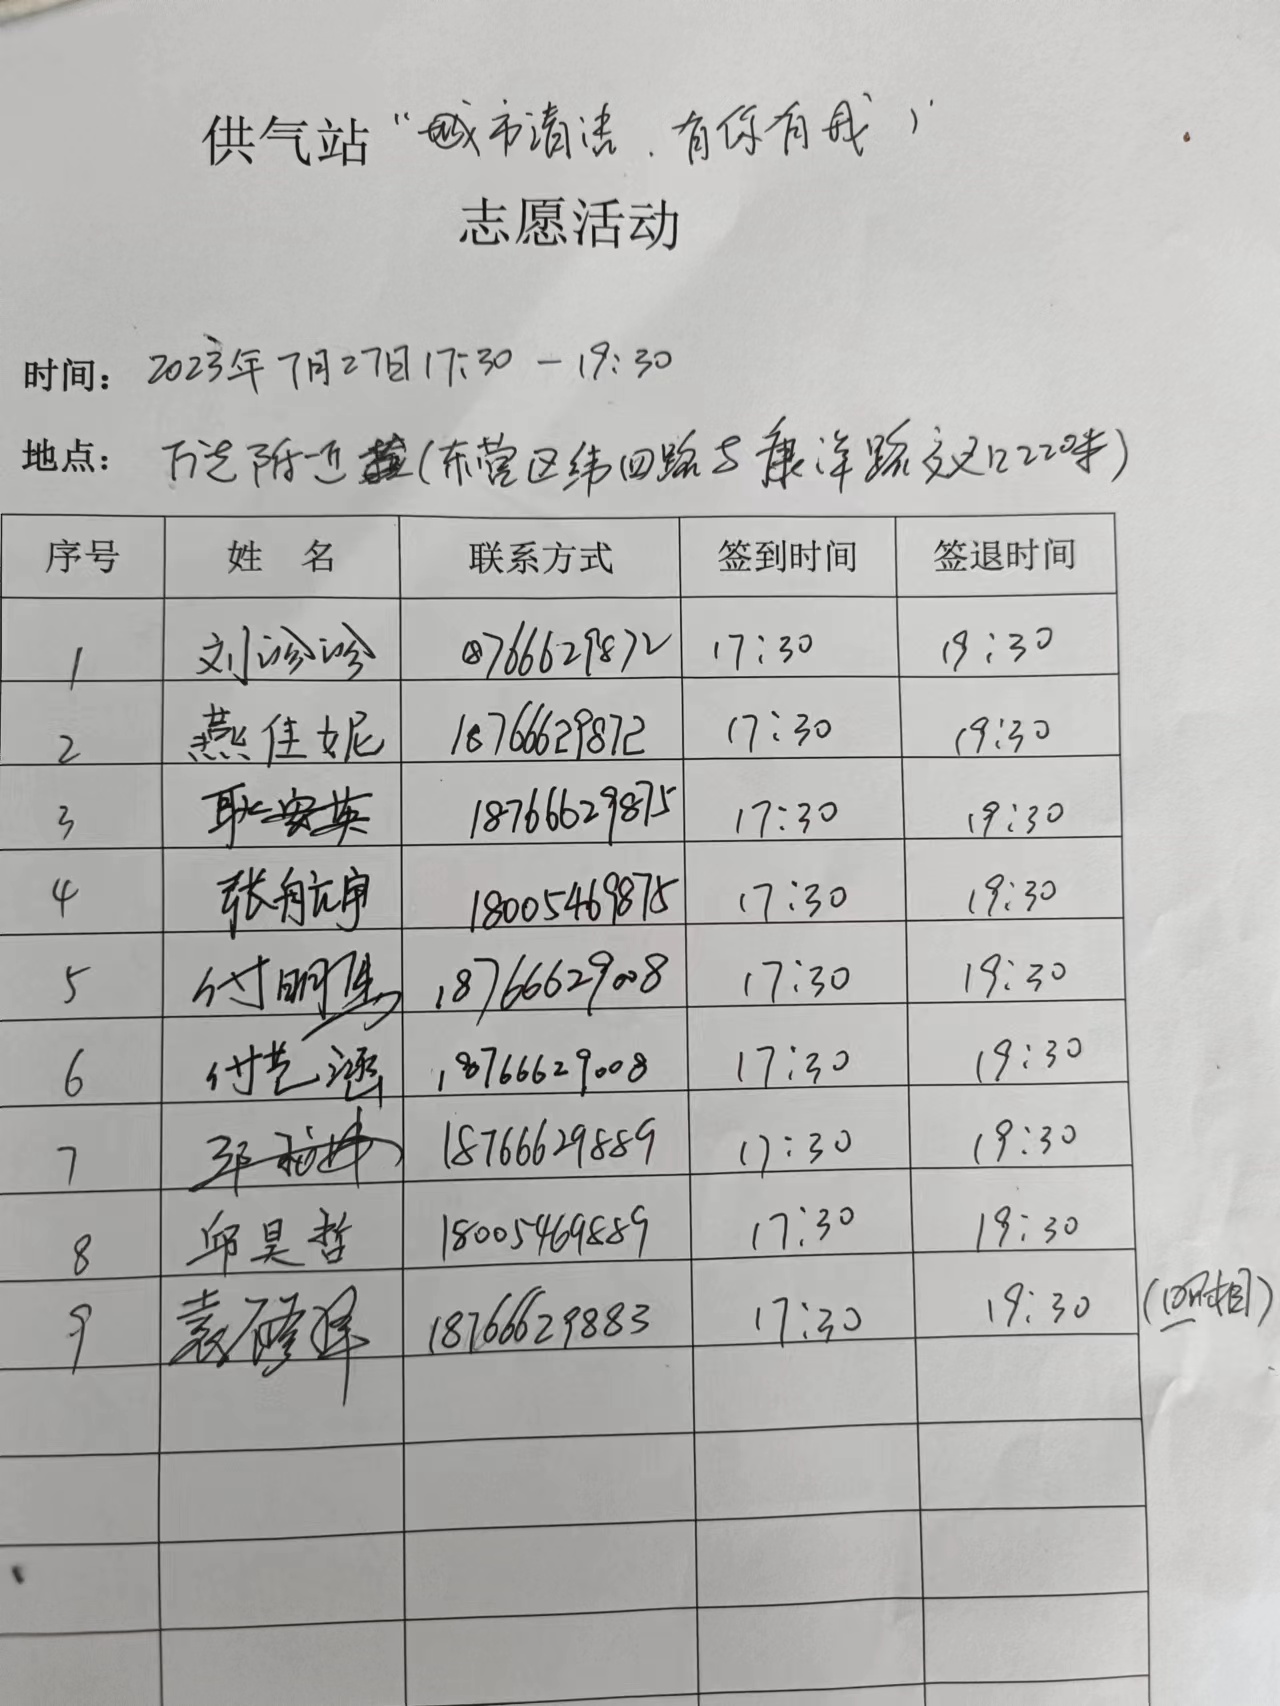 供气站“城市清洁.有你有我”
志愿活动
时间: 2023年7月27日17:30 — 19:30
地点: 万达附近(东营区纬四路与康洋路交叉口220米)
序号 姓 名 联系方式 签到时间 签退时间
1 刘诊诊 18766629872 17:30 19:30
2 燕佳妮 18766629872 17:30 19:30
3 耿安英 18766629875 17:30 19:30
4 张航宇 18005469875 17:30 19:30
5 付明 18766629008 17:30 19:30
6 付艺涵 18766629008 17:30 19:30
7 18766629889 17:30 19:30
8 邱昊哲 18005469889 17:30 19:30
9 袁 18766629883 17:30 19:30